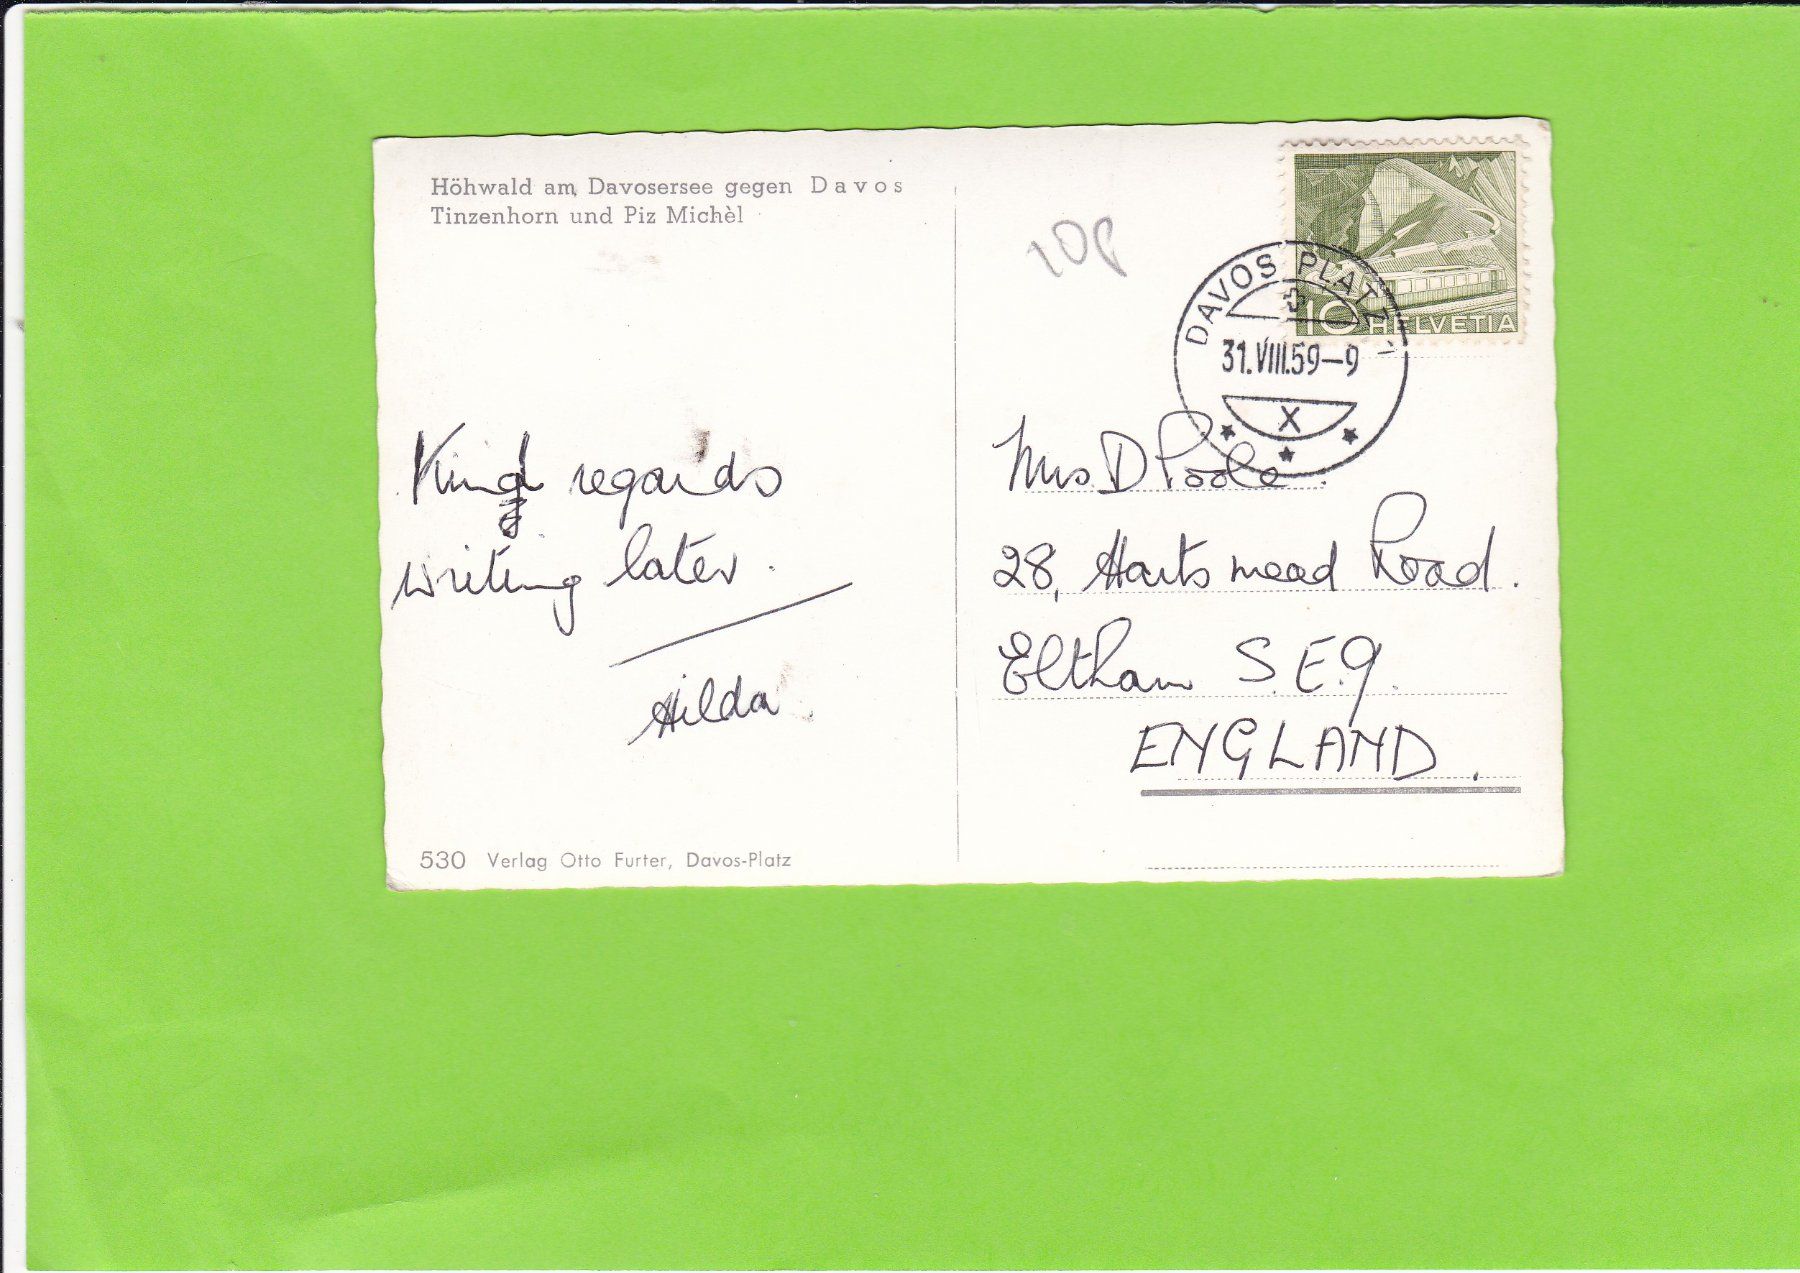 Höhwald am Davosersee gegen Davos
Tinzenhorn und Piz Michèl
10p
10 HELVETIA
DAVOS PLATZ 1
31.VIII.59-9
X
Kind regards
writing later.
Hilda.
Mrs D Poole.
28, Harts mead Road.
Eltham S.E.9.
ENGLAND.
530 Verlag Otto Furter, Davos-Platz